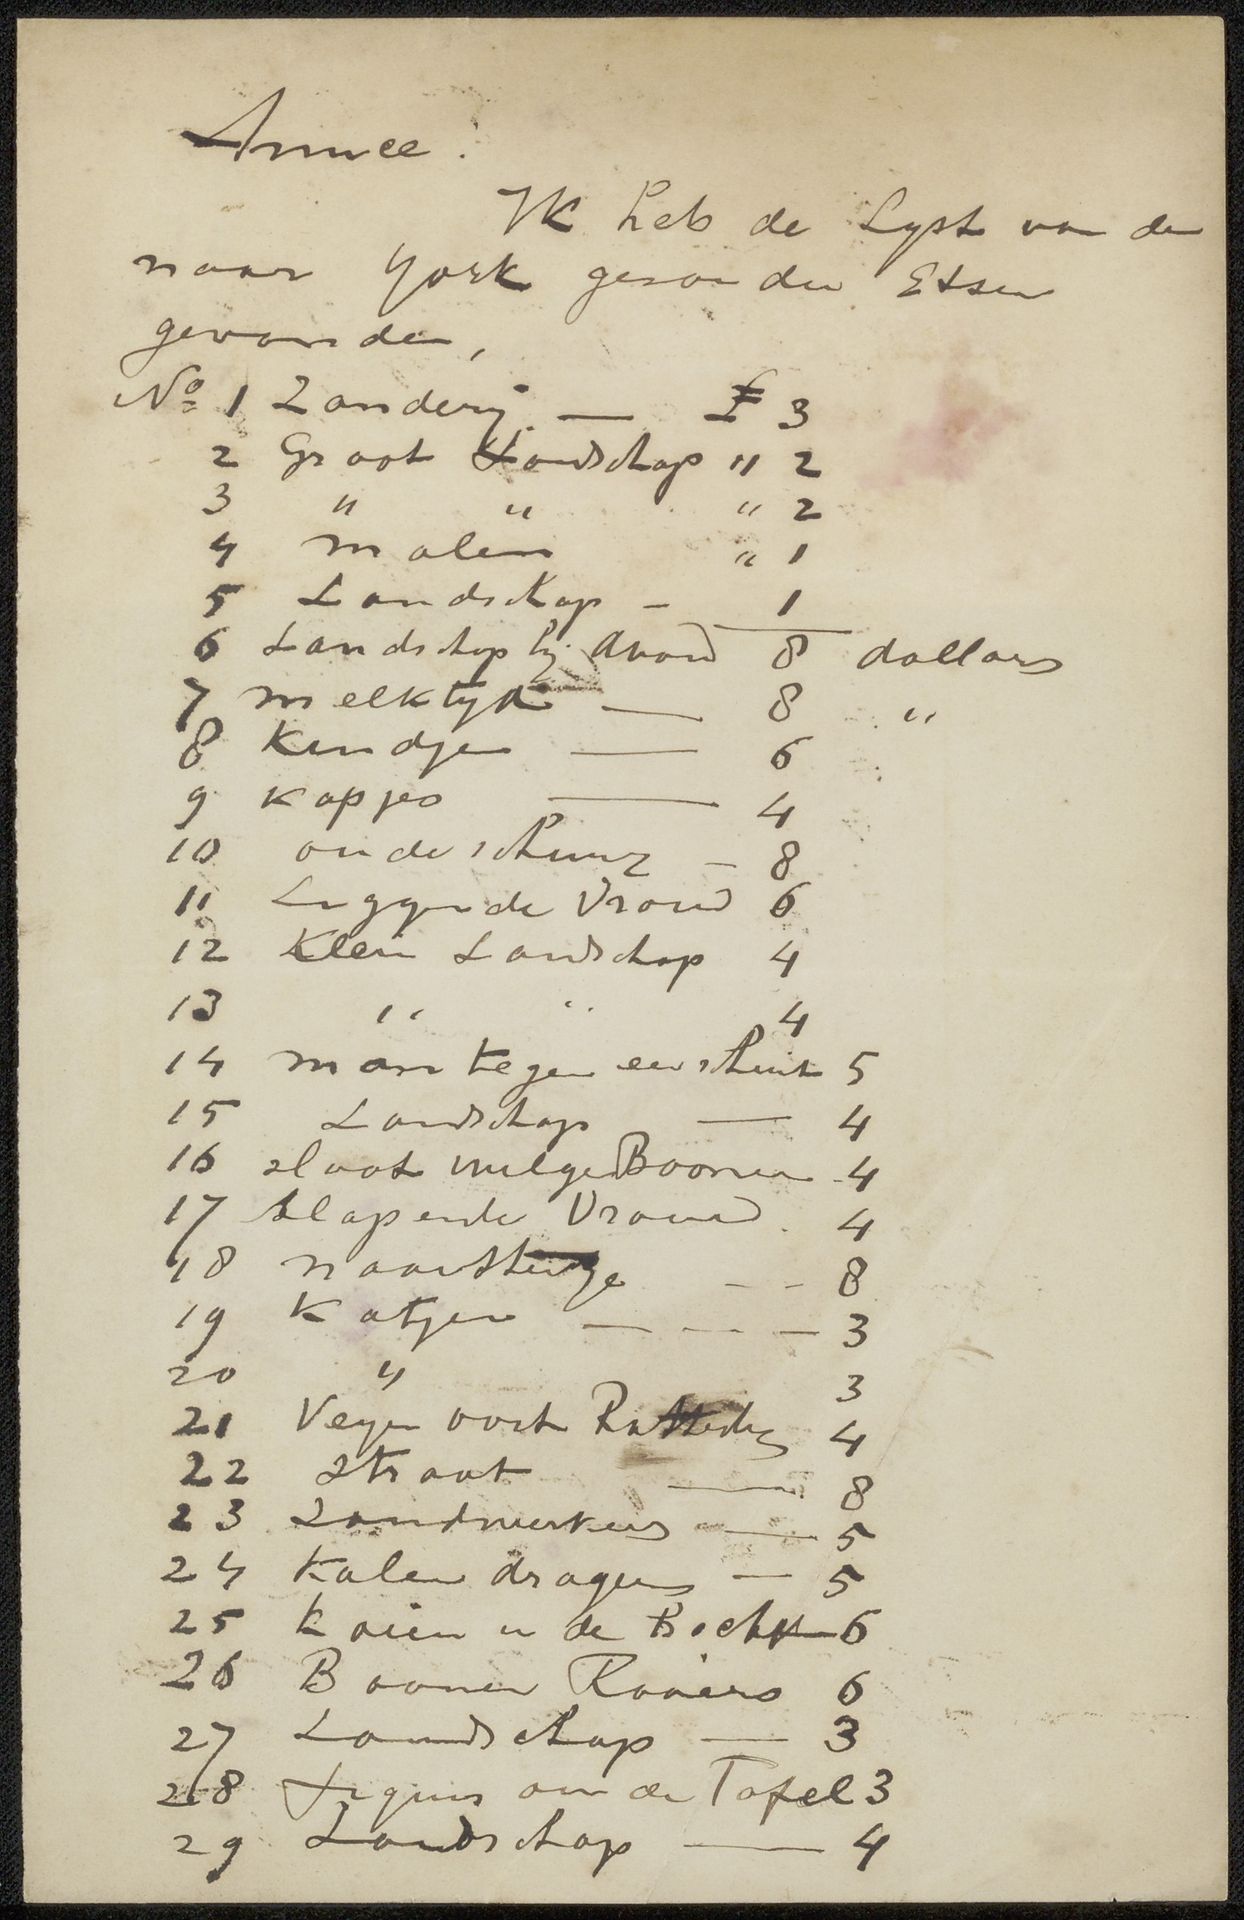 Annee.
Ik heb de Lyst van de
naar York gezonden Etsen
gevonden,
No 1 Zanderij — £ 3
2 Groot Landschap " 2
3 " " " 2
4 molen " 1
5 Landschap - 1
6 Landschap bij Avond 8 dollars
7 melktyd — 8 "
8 Kindje — 6
9 Kopjes — 4
10 oude schuur - 8
11 Liggende Vrouw 6
12 Klein Landschap 4
13 " " 4
14 man tegen een schuit 5
15 Landschap — 4
16 sloot wilge Boomen 4
17 slapende Vrouw. 4
18 naaistertje - - 8
19 Katjen — — — 3
20 " 3
21 Veger oost 4
22 straat — 8
23 Landwerkers — 5
24 Kolen dragers — 5
25 Koeien in de Bocht 6
26 Boomen Rooiers 6
27 Landschap — 3
28 Figuur om de Tafel 3
29 Landschap — 4